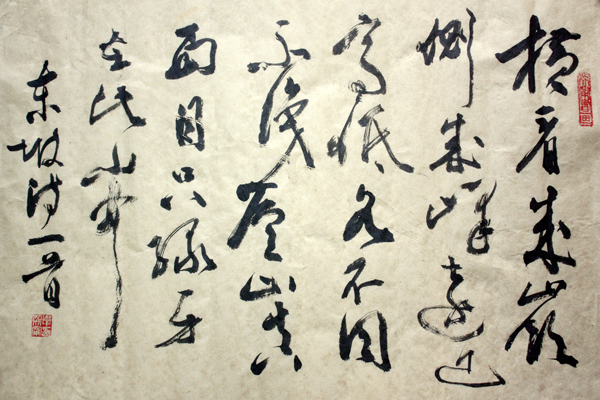 横看成岭
侧成峰远近
高低各不同
不识庐山真
面目只缘身
在此山中
东坡诗一首